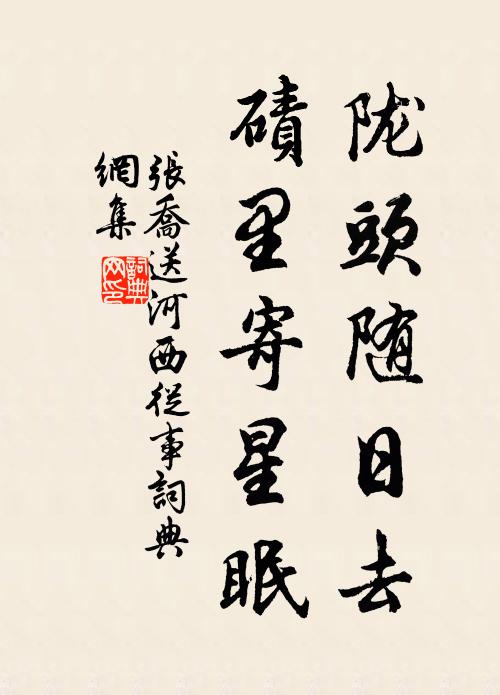 陇頭随日去
磧里寄星眠
張喬送河西從事詞典
網集
詞典網印